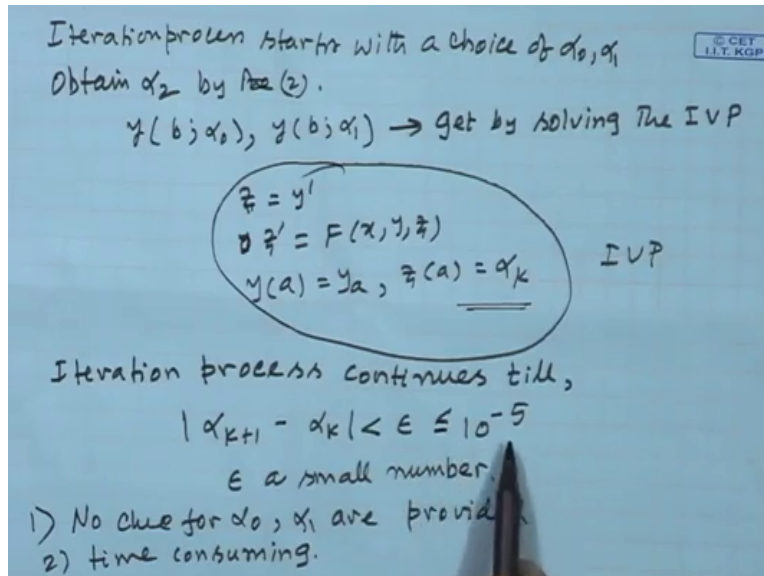 Iteration process starts with a choice of α₀, α₁
© CET
I.I.T. KGP
Obtain α₂ by (2).
y(b; α₀), y(b; α₁) → get by solving The IVP
z = y'
z' = F(x, y, z)
y(a) = ya, z(a) = αk
IVP
Iteration process continues till,
| αk+1 - αk | < ε ≤ 10⁻⁵
ε a small number.
1) No clue for α₀, α₁ are provid
2) time consuming.